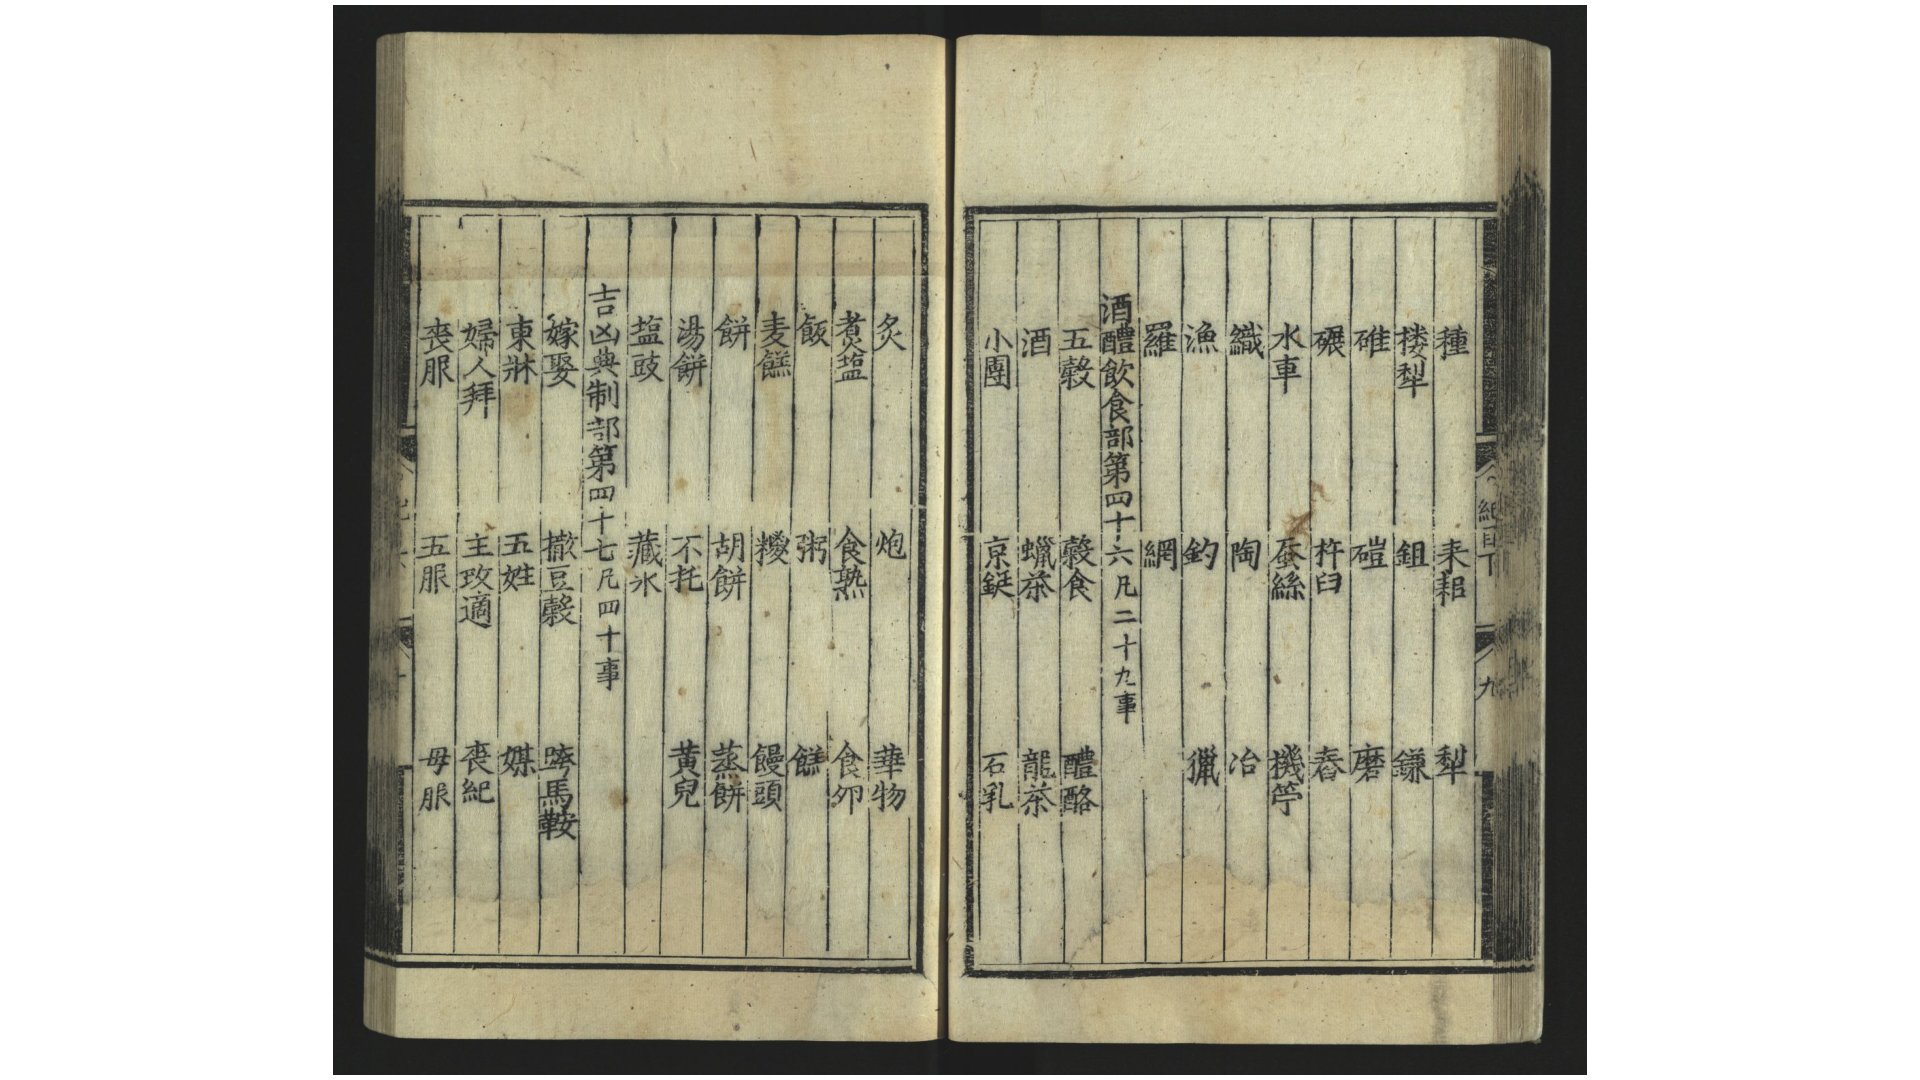 種 耒耜 犁
耬犁 鉏 鎌
碓 磑 磨
碾 杵臼 舂
水車 蚕絲 機竺
織 陶 冶
漁 釣 獵
羅 網
酒醴飲食部第四十六凡二十九事
五穀 穀食 醴酪
酒 蠟茶 龍茶
小團 京鋌 石乳
九
炙 炮 華物
煮塩 食熟 食卵
飯 粥 餻
麦䭔 糭 饅頭
餅 胡餅 蒸餅
湯餅 不托 黃兒
塩豉 藏氷
吉凶典制部第四十七凡四十事
嫁娶 撒豆穀 跨馬鞍
東牀 五姓 媒
婦人拜 主攻適 喪紀
喪服 五服 母服